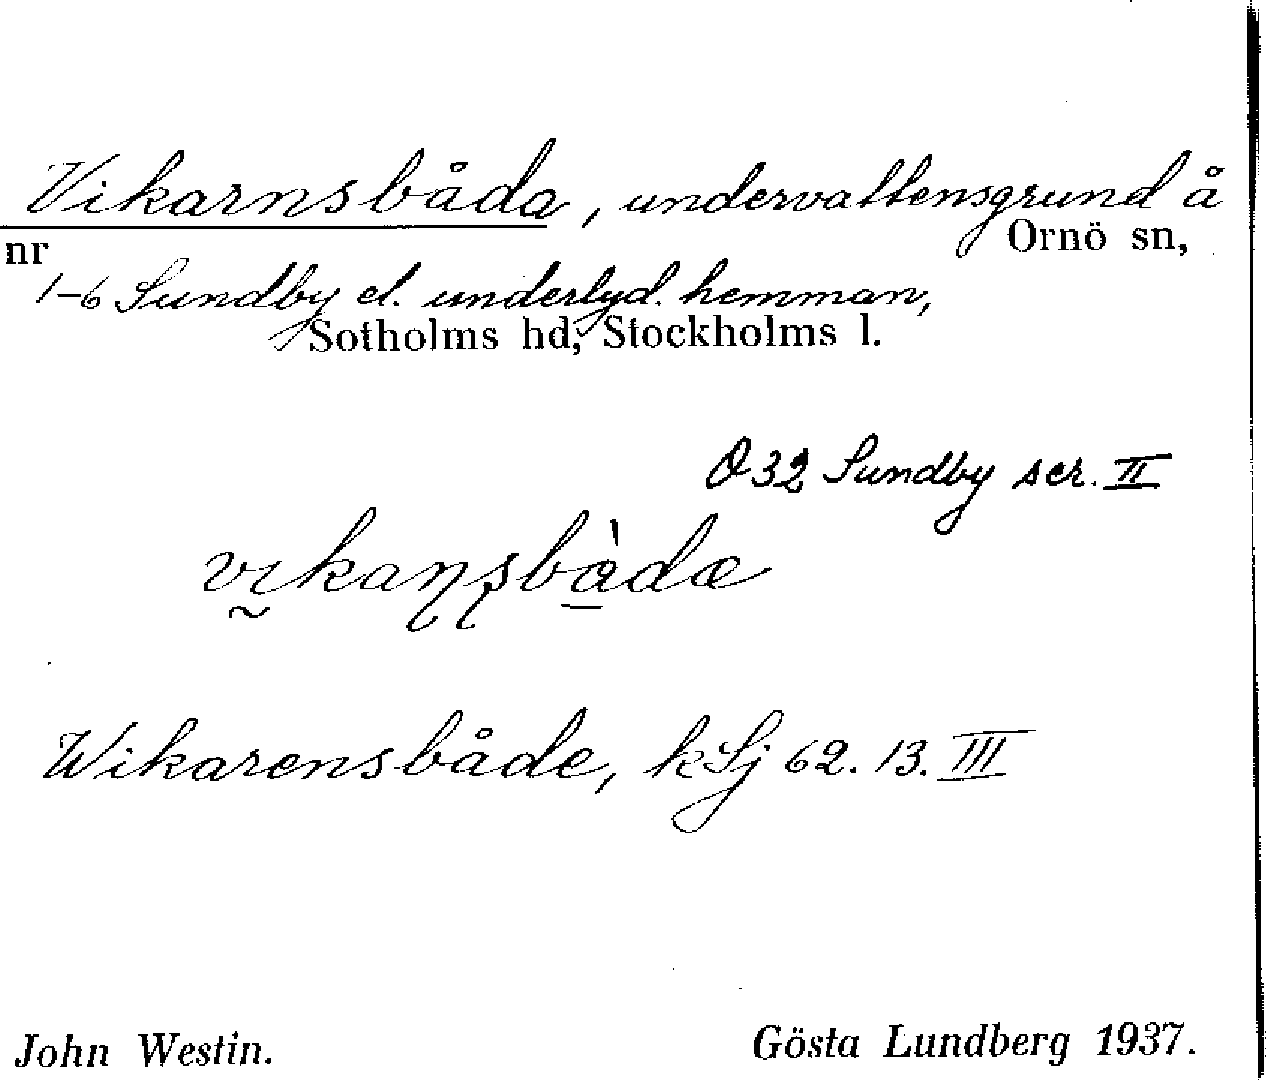 Vikarnsbåda, undervattensgrund å
Ornö sn,
nr
1-6 Sundby el. underlyd. hemman,
Sotholms hd, Stockholms l.
O 32 Sundby scr. II
vı̰kaɳʂbàdæ
Wikarensbåde, kSj 62. 13. III
John Westin. Gösta Lundberg 1937.